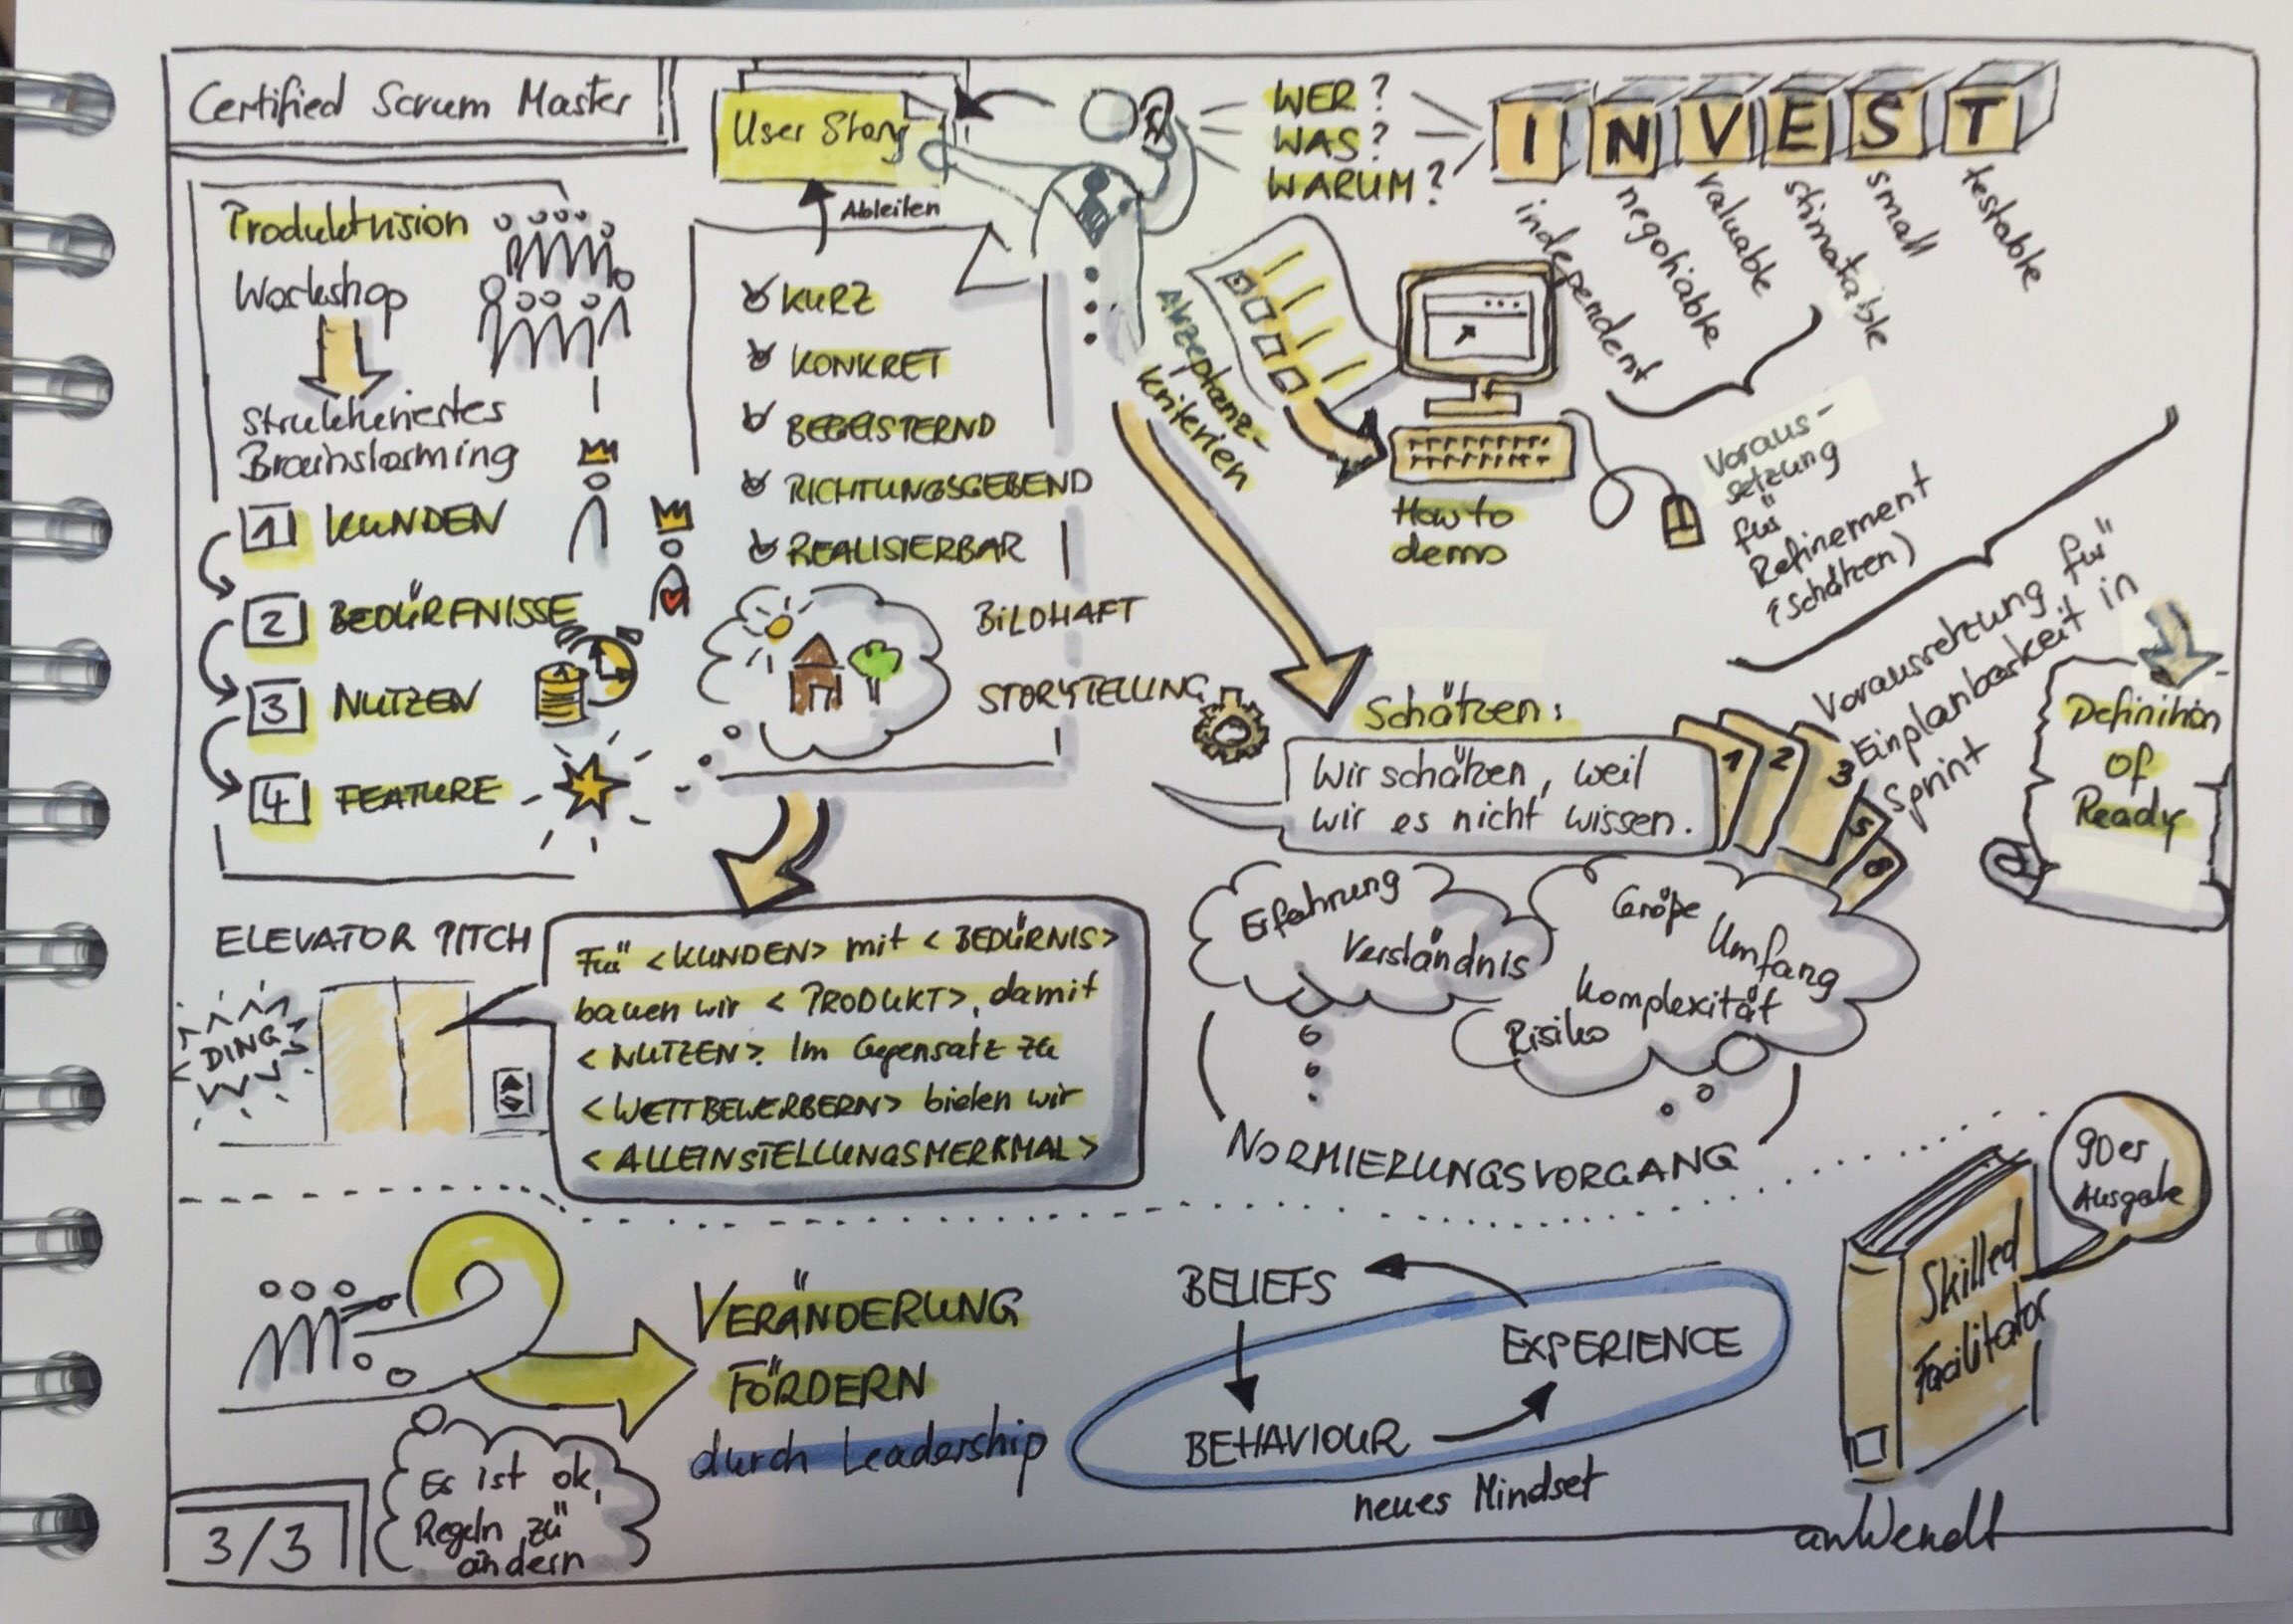 Certified Scrum Master
Produktvision
Workshop
Strukturiertes
Brainstorming
1 KUNDEN
2 BEDÜRFNISSE
3 NUTZEN
4 FEATURE
User Story
Ableiten
KURZ
KONKRET
BEGEISTERND
RICHTUNGSGEBEND
REALISIERBAR
BILDHAFT
STORYTELLING
WER?
WAS?
WARUM?
I N V E S T
independent
negotiable
valuable
stimatable
small
testable
Akzeptanz-
kriterien
How to
demo
Voraus-
setzung
für
Refinement
(Schätzen)
Voraussetzung für
Einplanbarkeit in
Sprint
Definition
of
Ready
Schätzen:
Wir schätzen, weil
wir es nicht wissen.
1 2 3 5 8
Erfahrung
Verständnis
Größe
Umfang
Komplexität
Risiko
NORMIERUNGSVORGANG
ELEVATOR PITCH
DING
Für <KUNDEN> mit <BEDÜRNIS>
bauen wir <PRODUKT>, damit
<NUTZEN>. Im Gegensatz zu
<WETTBEWERBERN> bieten wir
<ALLEINSTELLUNGSMERKMAL>
VERÄNDERUNG
FÖRDERN
durch Leadership
Es ist ok,
Regeln zu
ändern
BELIEFS
EXPERIENCE
BEHAVIOUR
neues Mindset
90er
Ausgabe
Skilled
Facilitator
anWendt
3/3